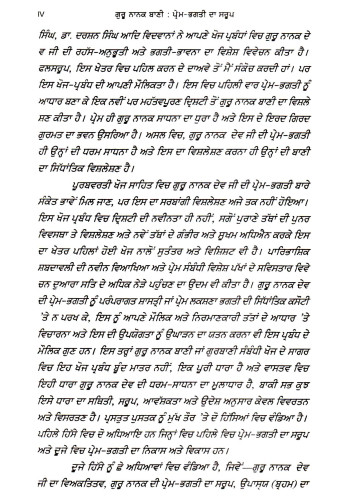 IV ਗੁਰੂ ਨਾਨਕ ਬਾਣੀ : ਪ੍ਰੇਮ-ਭਗਤੀ ਦਾ ਸਰੂਪ
ਸਿੰਘ, ਡਾ. ਦਰਸ਼ਨ ਸਿੰਘ ਆਦਿ ਵਿਦਵਾਨਾਂ ਨੇ ਆਪਣੇ ਖੋਜ ਪ੍ਰਬੰਧਾਂ ਵਿਚ ਗੁਰੂ ਨਾਨਕ ਦੇ
ਵ ਜੀ ਦੀ ਰਹੱਸ-ਅਨੁਭੂਤੀ ਅਤੇ ਭਗਤੀ-ਭਾਵਨਾ ਦਾ ਵਿਸ਼ੇਸ਼ ਵਿਵੇਚਨ ਕੀਤਾ ਹੈ।
ਫਲਸਰੂਪ, ਇਸ ਖੇਤਰ ਵਿਚ ਪਹਿਲ ਕਰਨ ਦੇ ਦਾਅਵੇ ਤੋਂ ਮੈਂ ਸੰਕੋਚ ਕਰਦੀ ਹਾਂ। ਪਰ
ਇਸ ਖੋਜ-ਪ੍ਰਬੰਧ ਦੀ ਆਪਣੀ ਮੌਲਿਕਤਾ ਹੈ। ਇਸ ਵਿਚ ਪਹਿਲੀ ਵਾਰ ਪ੍ਰੇਮ-ਭਗਤੀ ਨੂੰ
ਆਧਾਰ ਬਣਾ ਕੇ ਇਕ ਨਵੀਂ ਪਰ ਮਹੱਤਵਪੂਰਣ ਦ੍ਰਿਸ਼ਟੀ ਤੋਂ ਗੁਰੂ ਨਾਨਕ ਬਾਣੀ ਦਾ ਵਿਸ਼ਲੇ
ਸ਼ਣ ਕੀਤਾ ਹੈ। ਪ੍ਰੇਮ ਹੀ ਗੁਰੂ ਨਾਨਕ ਸਾਧਨਾ ਦਾ ਧੁਰਾ ਹੈ ਅਤੇ ਇਸ ਦੇ ਇਰਦ ਗਿਰਦ
ਗੁਰਮਤ ਦਾ ਭਵਨ ਉਸਰਿਆ ਹੈ। ਅਸਲ ਵਿਚ, ਗੁਰੂ ਨਾਨਕ ਦੇਵ ਜੀ ਦੀ ਪ੍ਰੇਮ-ਭਗਤੀ
ਹੀ ਉਨ੍ਹਾਂ ਦੀ ਧਰਮ ਸਾਧਨਾ ਹੈ ਅਤੇ ਇਸ ਦਾ ਵਿਸ਼ਲੇਸ਼ਣ ਕਰਨਾ ਹੀ ਉਨ੍ਹਾਂ ਦੀ ਬਾਣੀ
ਦਾ ਸਿੱਧਾਂਤਿਕ ਵਿਸ਼ਲੇਸ਼ਣ ਹੈ।
ਪੂਰਬਵਰਤੀ ਖੋਜ ਸਾਹਿਤ ਵਿਚ ਗੁਰੂ ਨਾਨਕ ਦੇਵ ਜੀ ਦੀ ਪ੍ਰੇਮ-ਭਗਤੀ ਬਾਰੇ
ਸੰਕੇਤ ਭਾਵੇਂ ਮਿਲ ਜਾਣ, ਪਰ ਇਸ ਦਾ ਸਰਬਾਂਗੀ ਵਿਸ਼ਲੇਸ਼ਣ ਅਜੇ ਤਕ ਨਹੀਂ ਹੋਇਆ।
ਇਸ ਖੋਜ ਪ੍ਰਬੰਧ ਵਿਚ ਦ੍ਰਿਸ਼ਟੀ ਦੀ ਨਵੀਨਤਾ ਹੀ ਨਹੀਂ, ਸਗੋਂ ਪੁਰਾਣੇ ਤੱਥਾਂ ਦੀ ਪੁਨਰ
ਵਿਵਸਥਾ ਤੇ ਵਿਸ਼ਲੇਸ਼ਣ ਅਤੇ ਨਵੇਂ ਤੱਥਾਂ ਦੇ ਗੰਭੀਰ ਅਤੇ ਸੂਖਮ ਅਧਿਐਨ ਕਰਕੇ ਇਸ
ਦਾ ਖੇਤਰ ਪਹਿਲਾਂ ਹੋਈ ਖੋਜ ਨਾਲੋਂ ਸੁਤੰਤਰ ਅਤੇ ਵਿਸ਼ਿਸ਼ਟੀ ਵੀ ਹੈ। ਪਾਰਿਭਾਸ਼ਿਕ
ਸ਼ਬਦਾਵਲੀ ਦੀ ਨਵੀਨ ਵਿਆਖਿਆ ਅਤੇ ਪ੍ਰੇਮ ਸੰਬੰਧੀ ਵਿਸ਼ੇਸ਼ ਪੱਖਾਂ ਦੇ ਸਵਿਸਤਾਰ ਵਿਵੇ
ਚਨ ਦੁਆਰਾ ਸਤਿ ਦੇ ਅਧਿਕ ਨੇੜੇ ਪਹੁੰਚਣ ਦਾ ਉਦਮ ਵੀ ਕੀਤਾ ਹੈ। ਗੁਰੂ ਨਾਨਕ ਦੇਵ
ਦੀ ਪ੍ਰੇਮ-ਭਗਤੀ ਨੂੰ ਪਰੰਪਰਾਗਤ ਸ਼ਾਸਤ੍ਰੀ ਜਾਂ ਪ੍ਰੇਮ ਲਕਸ਼ਣਾ ਭਗਤੀ ਦੀ ਸਿੱਧਾਂਤਿਕ ਕਸੌਟੀ
'ਤੇ ਨ ਪਰਖ ਕੇ, ਇਸ ਨੂੰ ਆਪਣੇ ਮੌਲਿਕ ਅਤੇ ਨਿਰਮਾਣਕਾਰੀ ਤੱਤਾਂ ਦੇ ਆਧਾਰ 'ਤੇ
ਵਿਚਾਰਨਾ ਅਤੇ ਇਸ ਦੀ ਉਪਯੋਗਤਾ ਨੂੰ ਉਘਾੜਨ ਦਾ ਯਤਨ ਕਰਨਾ ਵੀ ਇਸ ਪ੍ਰਬੰਧ ਦੇ
ਮੌਲਿਕ ਗੁਣ ਹਨ। ਇਸ ਤਰ੍ਹਾਂ ਗੁਰੂ ਨਾਨਕ ਬਾਣੀ ਜਾਂ ਗੁਰਬਾਣੀ ਸੰਬੰਧੀ ਖੋਜ ਦੇ ਸਾਗਰ
ਵਿਚ ਇਹ ਖੋਜ ਪ੍ਰਬੰਧ ਬੂੰਦ ਮਾਤਰ ਨਹੀਂ, ਇਕ ਪੂਰੀ ਧਾਰਾ ਹੈ ਅਤੇ ਵਾਸਤਵ ਵਿਚ
ਇਹੀ ਧਾਰਾ ਗੁਰੂ ਨਾਨਕ ਦੇਵ ਦੀ ਧਰਮ-ਸਾਧਨਾ ਦਾ ਮੂਲਾਧਾਰ ਹੈ, ਬਾਕੀ ਸਭ ਕੁਝ
ਇਸੇ ਧਾਰਾ ਦਾ ਸਥਿਤੀ, ਸਰੂਪ, ਆਵਸ਼ੱਕਤਾ ਅਤੇ ਉਦੇਸ਼ ਅਨੁਸਾਰ ਕੇਵਲ ਵਿਵਰਤਨ
ਅਤੇ ਵਿਸਰਤਣ ਹੈ। ਪ੍ਰਸਤੁਤ ਪੁਸਤਕ ਨੂੰ ਮੁਖ ਤੌਰ 'ਤੇ ਦੋ ਹਿੱਸਿਆਂ ਵਿਚ ਵੰਡਿਆ ਹੈ।
ਪਹਿਲੇ ਹਿੱਸੇ ਵਿਚ ਦੋ ਅਧਿਆਇ ਹਨ ਜਿਨ੍ਹਾਂ ਵਿਚ ਪਹਿਲੇ ਵਿਚ ਪ੍ਰੇਮ-ਭਗਤੀ ਦਾ ਸਰੂਪ
ਅਤੇ ਦੂਜੇ ਵਿਚ ਪ੍ਰੇਮ-ਭਗਤੀ ਦਾ ਨਿਕਾਸ ਅਤੇ ਵਿਕਾਸ ਹਨ।
ਦੂਜੇ ਹਿੱਸੇ ਨੂੰ ਛੇ ਅਧਿਆਵਾਂ ਵਿਚ ਵੰਡਿਆ ਹੈ, ਜਿਵੇਂ—ਗੁਰੂ ਨਾਨਕ ਦੇਵ
ਜੀ ਦਾ ਵਿਅਕਤਿਤਵ, ਗੁਰੂ ਨਾਨਕ ਦੀ ਪ੍ਰੇਮ-ਭਗਤੀ ਦਾ ਸਰੂਪ, ਉਪਾਸ੍ਯ (ਬ੍ਰਹਮ) ਦਾ